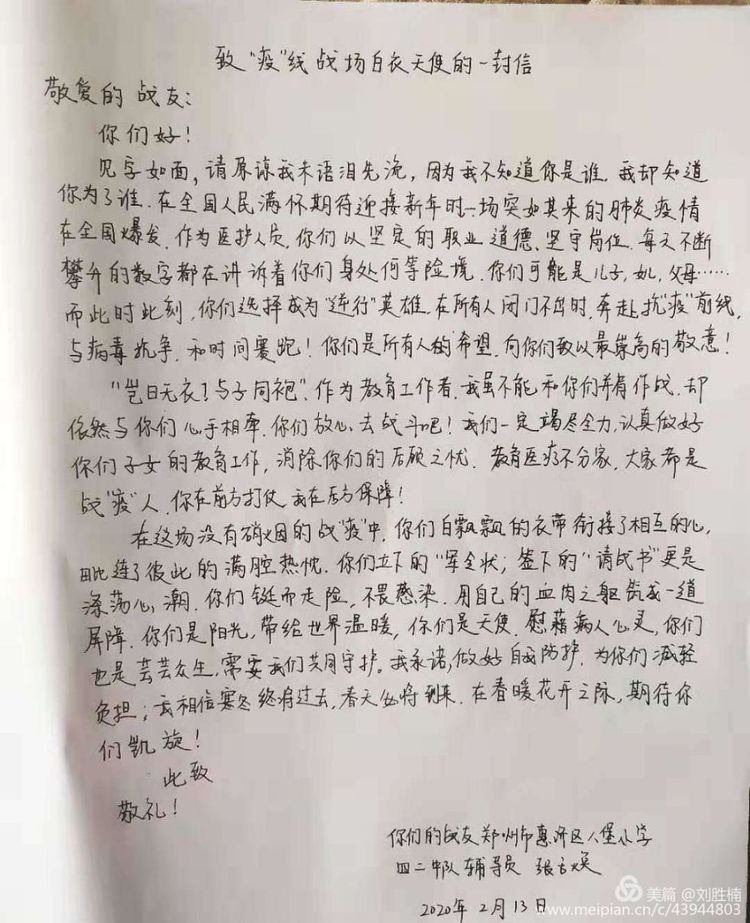 致“疫”线战场白衣天使的一封信
敬爱的战友:
你们好!
见字如面,请原谅我未语泪先流,因为我不知道你是谁.我却知道
你为了谁.在全国人民满怀期待迎接新年时一场突如其来的肺炎疫情
在全国爆发.作为医护人员,你们以坚定的职业道德、坚守岗位.每天不断
攀升的数字都在讲诉着你们身处何等险境.你们可能是儿子,女儿,父母……
而此时此刻,你们选择成为“逆行”英雄.在所有人闭门不出时.奔赴抗“疫”前线,
与病毒抗争.和时间赛跑!你们是所有人的希望.向你们致以最崇高的敬意!
“岂曰无衣?与子同袍”.作为教育工作者.我虽不能和你们并肩作战.却
依然与你们心手相牵.你们放心去战斗吧!我们一定竭尽全力,认真做好
你们子女的教育工作,消除你们的后顾之忧.教育医疗不分家,大家都是
战“疫”人.你在前方打仗,我在后方保障!
在这场没有硝烟的战“疫”中.你们白飘飘的衣带衔接了相互的心,
毗连了彼此的满腔热忱.你们立下的“军令状;签下的“请战书”更是
涤荡心潮.你们铤而走险,不畏感染.用自己的血肉之躯筑成一道
屏障.你们是阳光,带给世界温暖,你们是天使.慰藉病人心灵,你们
也是芸芸众生,需要我们共同守护.我承诺,做好自我防护.为你们减轻
负担;我相信寒冬终将过去,春天必将到来.在春暖花开之际,期待你
们凯旋!
此致
敬礼!
你们的战友郑州市惠济区八堡小学
四二中队辅导员 张
2020年2月13日
美篇 @刘胜楠
www.meipian.cn/c/43944803